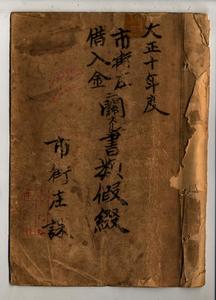 大正十年度
市街庄
借入金
ニ関スル書類假綴
市街庄課